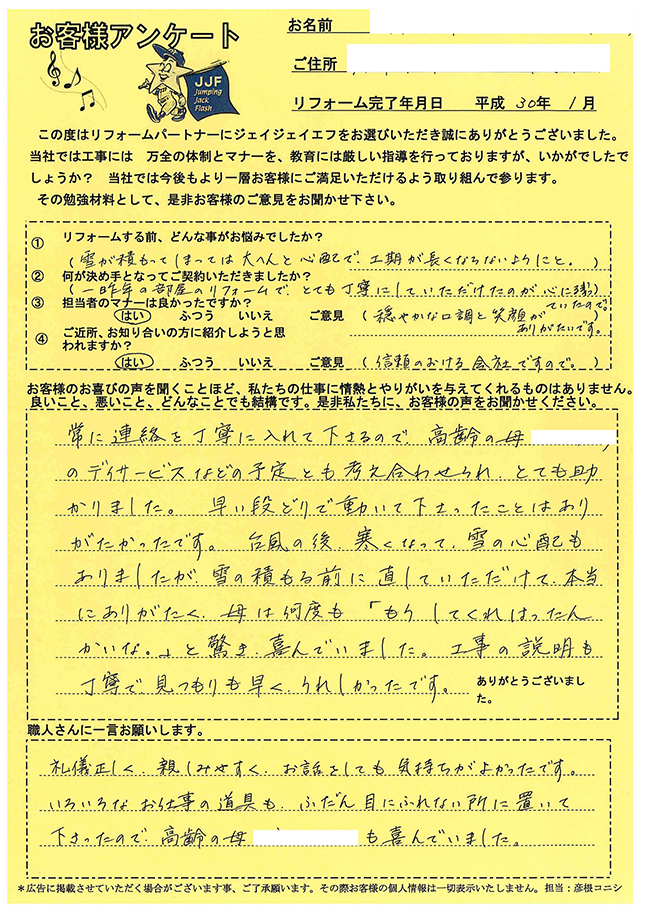 お客様アンケート
JJF
Jumping
Jack
Flash
お名前
ご住所
リフォーム完了年月日 平成 30年 1月
この度はリフォームパートナーにジェイジェイエフをお選びいただき誠にありがとうございました。
当社では工事には 万全の体制とマナーを、教育には厳しい指導を行っておりますが、いかがでしたで
しょうか? 当社では今後もより一層お客様にご満足いただけるよう取り組んで参ります。
その勉強材料として、是非お客様のご意見をお聞かせ下さい。
① リフォームする前、どんな事がお悩みでしたか?
(雪が積もってしまっては大へんと心配で、工期が長くならないようにと。)
② 何が決め手となってご契約いただきましたか?
(一昨年の部屋のリフォームで、とても丁寧にしていただけたのが心に残)
っていたので。
③ 担当者のマナーは良かったですか?
はい ふつう いいえ ご意見 (穏やかな口調と笑顔が
ありがたいです。)
④ ご近所、お知り合いの方に紹介しようと思
われますか?
はい ふつう いいえ ご意見 (信頼のおける会社ですので。)
お客様のお喜びの声を聞くことほど、私たちの仕事に情熱とやりがいを与えてくれるものはありません。
良いこと、悪いこと、どんなことでも結構です。是非私たちに、お客様の声をお聞かせください。
常に連絡を丁寧に入れて下さるので、高齢の母
のデイサービスなどの予定とも考え合わせられ、とても助
かりました。 早い段どりで動いて下さったことはあり
がたかったです。 台風の後、寒くなって、雪の心配も
ありましたが、雪の積もる前に直していただけて、本当
にありがたく、母は何度も「もうしてくれはったん
かいな。」と驚き、喜んでいました。 工事の説明も
丁寧で、見つもりも早く、うれしかったです。
ありがとうございまし
た。
職人さんに一言お願いします。
礼儀正しく、親しみやすく、お話をしても気持ちがよかったです。
いろいろなお仕事の道具も、ふだん目にふれない所に置いて
下さったので、高齢の母 も喜んでいました。
*広告に掲載させていただく場合がございます事、ご了承願います。その際お客様の個人情報は一切表示いたしません。担当:彦根コニシ